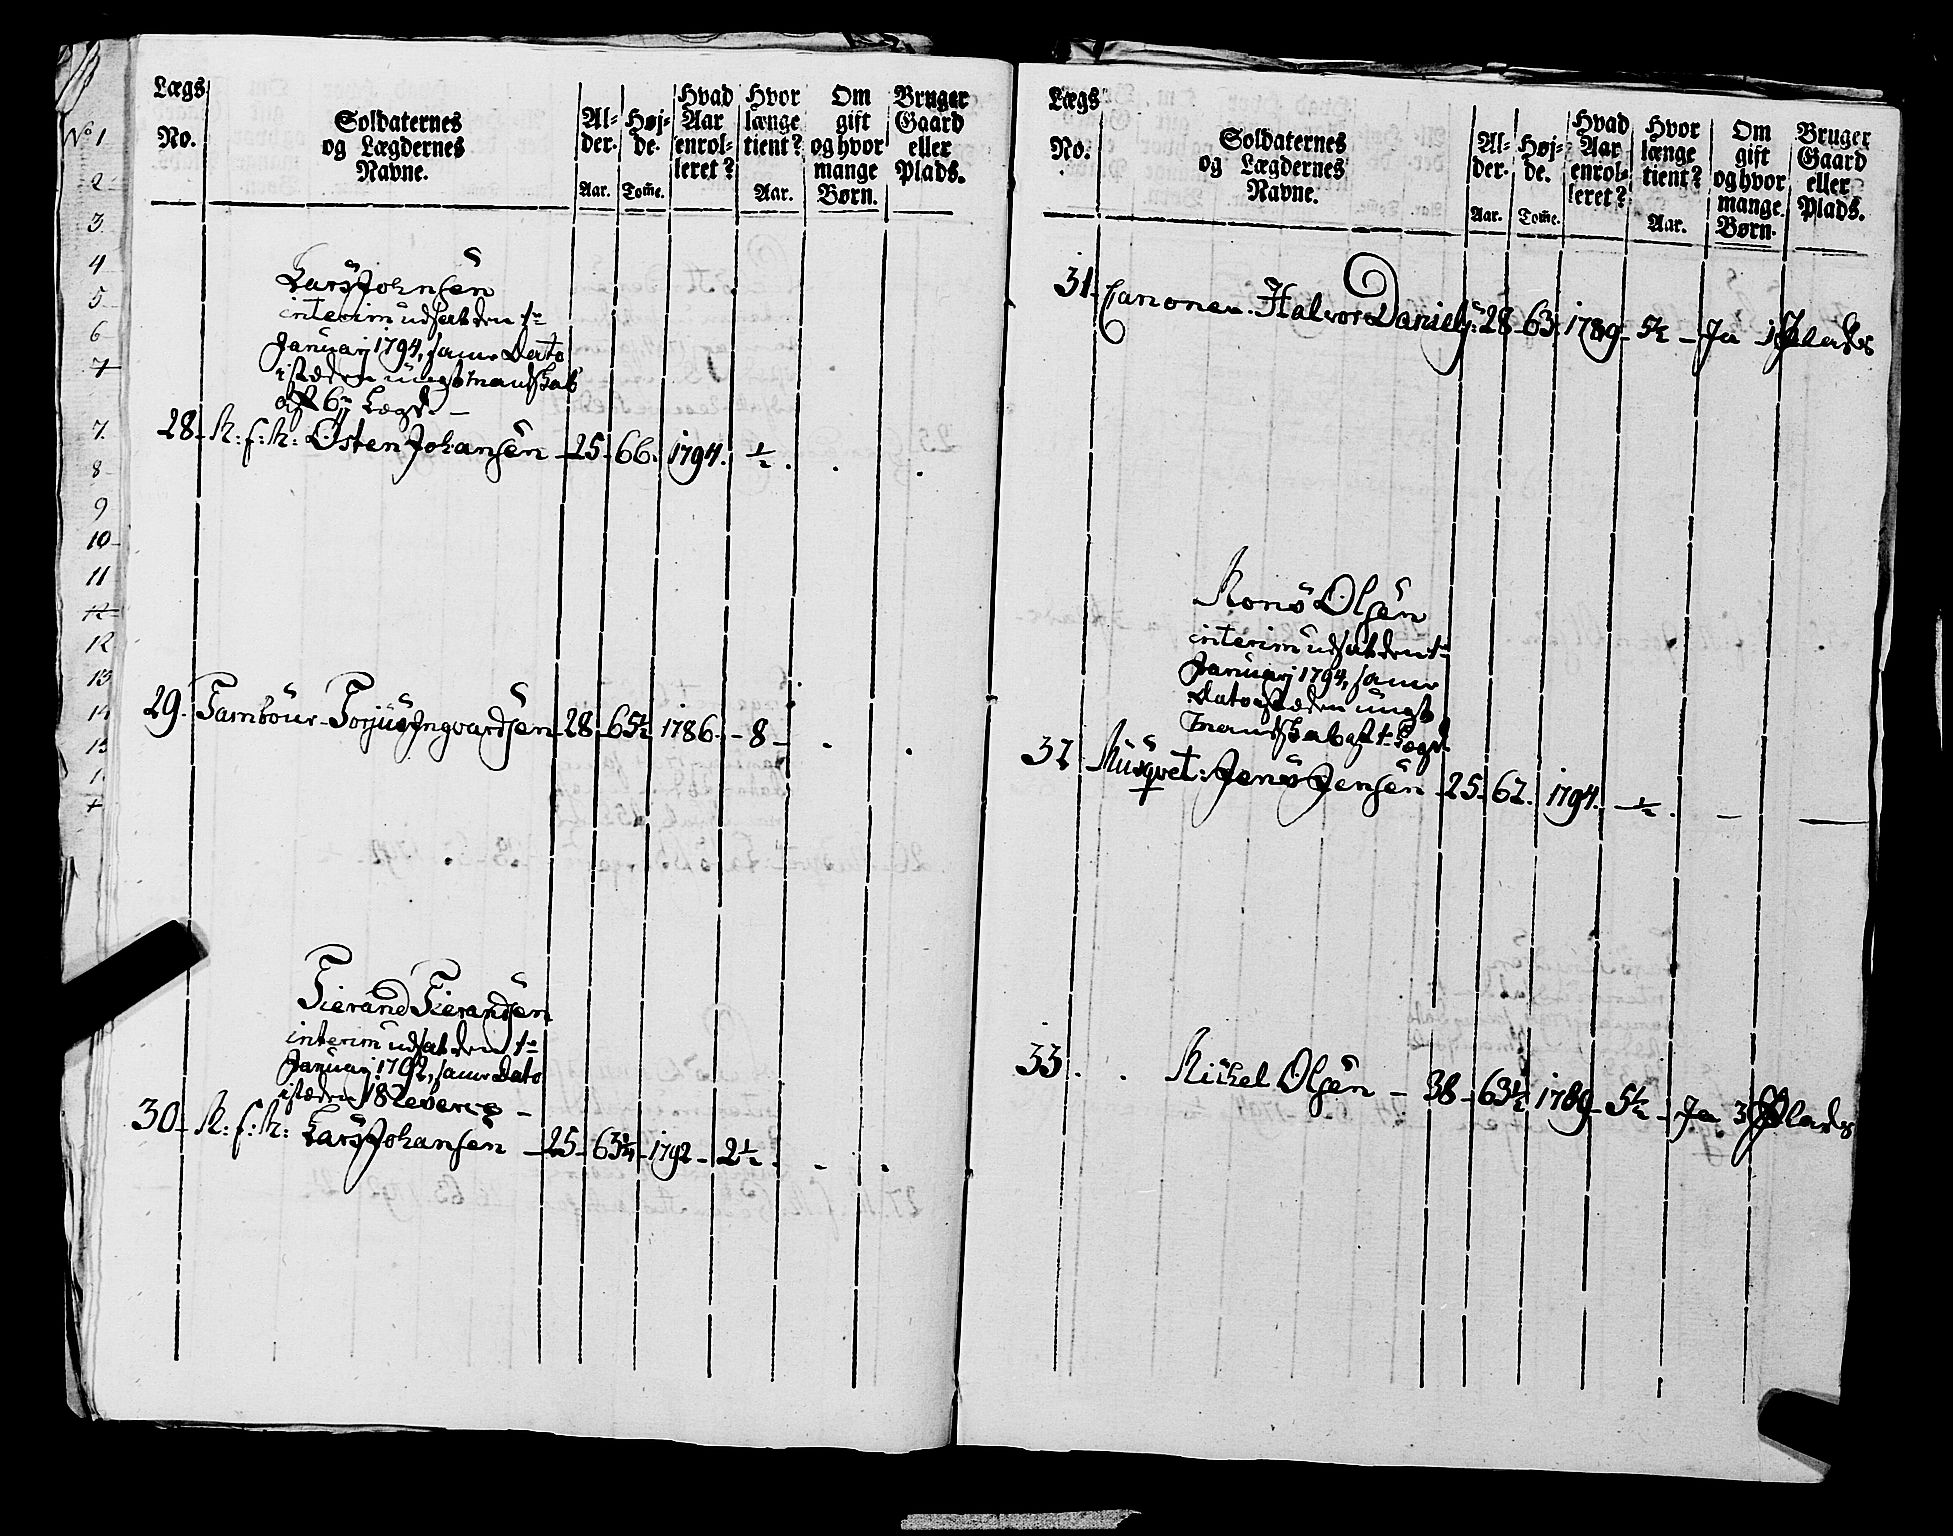 No 1
2
3
4
5
6
7
7.
8
9
10
11
12
12
13
14
15
1.
Lægs No.
Soldaternes og Lægdernes Navne.
Al-der. Aar.
Høj-de. Tom̄e.
Hvad Aar enrol-leret?
Hvor længe tient? Aar.
Om gift og hvor mange Børn.
Bruger Gaard eller Plads.
Lars Johnsen
interim udsat den 1te
Januarj 1794, samme Dato
isteden ungt mandskab
af 6te Lægd. —
28. R: f: R: Østen Johansen — 25. 66. 1794. ½.
29. Tambour Torjus Ingvardsen — 28 — 65½ 1786. — 8 —
Tierand Tierandsen
interim udsat den 1te
Januarj 1792, samme Dato
isteden 18
30. R: f: R: Lars Johansen — 25 — 63¼ — 1792 — 2½.
Lægs No.
Soldaternes og Lægdernes Navne.
Al-der. Aar.
Høj-de. Tom̄e.
Hvad Aar enrol-leret?
Hvor længe tient? Aar.
Om gift og hvor mange Børn.
Bruger Gaard eller Plads.
31. Canoneer. Halvor Daniels: 28 — 63. 1789 — 5½ — Ja 1 Plads
Mons Olsen
interim udsat den 1te
Januarj 1794, samme
Dato isteden ungt
mandskab af 1te Lægd.
32 Musqvet: Jens Jensen — 25 — 62. 1794. — ½. — —
33. Mikel Olsen — 38 — 63½ 1789 — 5½ — Ja 3 Plads